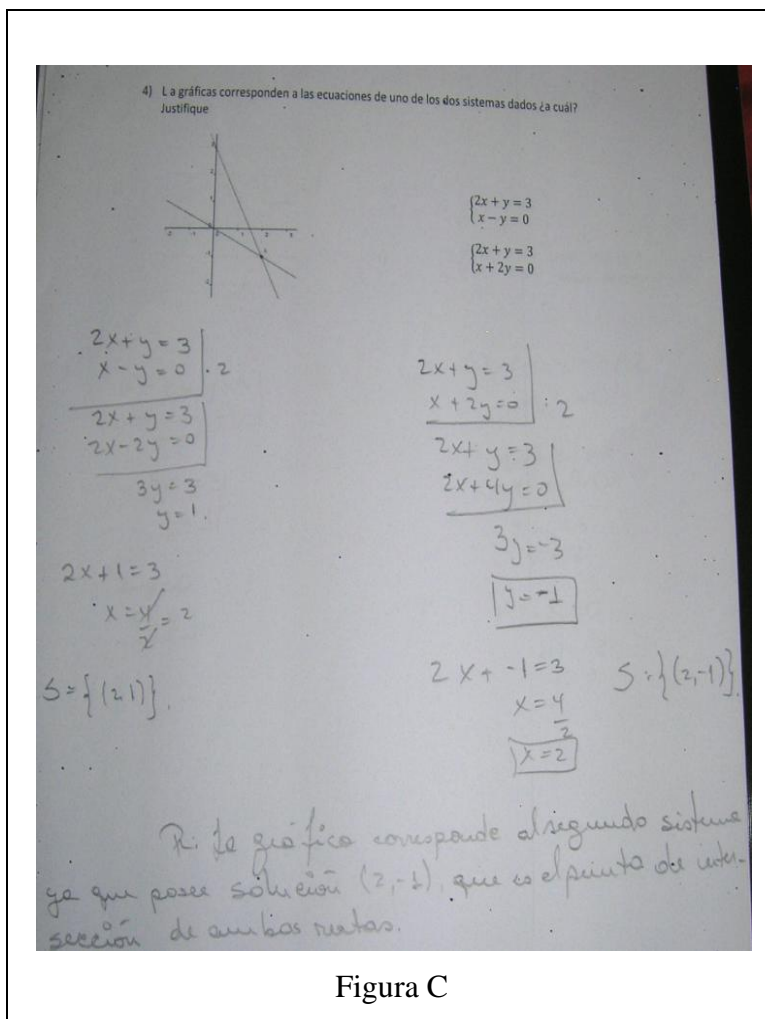 4) L a gráficas corresponden a las ecuaciones de uno de los dos sistemas dados ¿a cuál?
Justifique
2x + y = 3
x − y = 0
2x + y = 3
x + 2y = 0
2x + y = 3
x - y = 0 . 2
2x + y = 3
2x - 2y = 0
3y = 3
y = 1.
2x + 1 = 3
x = 4/2 = 2
S = {(2 1)}.
2x + y = 3
x + 2y = 0 : 2
2x + y = 3
2x + 4y = 0
3y = -3
y = -1
2x + -1 = 3
x = 4/2
x = 2
S = {(2,-1)}.
R: La gráfica corresponde al segundo sistema
ya que posee solución (2,-1), que es el punto de inter-
sección de ambas rectas.
Figura C